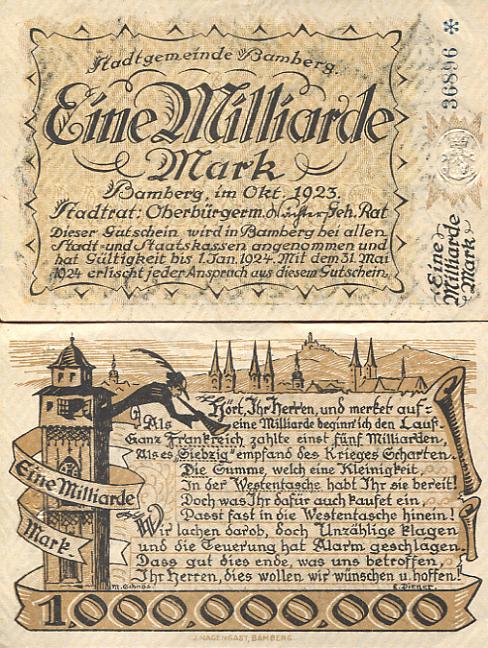 Stadtgemeinde Bamberg.
Eine Milliarde
Mark
Bamberg, im Okt. 1923.
Stadtrat: Oberbürgerm. Geh. Rat
Dieser Gutschein wird in Bamberg bei allen
Stadt- und Staatskassen angenommen und
hat Gültigkeit bis 1. Jan. 1924. Mit dem 31. Mai
1924 erlischt jeder Anspruch aus diesem Gutschein.
36896 *
Eine
Milliarde
Mark
Hört, Ihr Herren, und merket auf:
Als eine Milliarde beginn ich den Lauf.
Ganz Frankreich zahlte einst fünf Milliarden,
Als es „Siebzig" empfand des Krieges Scharten.
Die Summe, welch eine Kleinigkeit,
In der Westentasche habt Ihr sie bereit!
Doch was Ihr dafür auch kaufet ein
Dasst fast in die Westentasche hinein!
Wir lachen darob, doch Unzählige klagen
und die Teuerung hat Alarm geschlagen.
Dass gut dies ende, was uns betroffen,
Ihr Herren, dies wollen wir wünschen u. hoffen!
Eine Milliarde
Mark
1,000,000,000
J. NAGENGAST, BAMBERG.